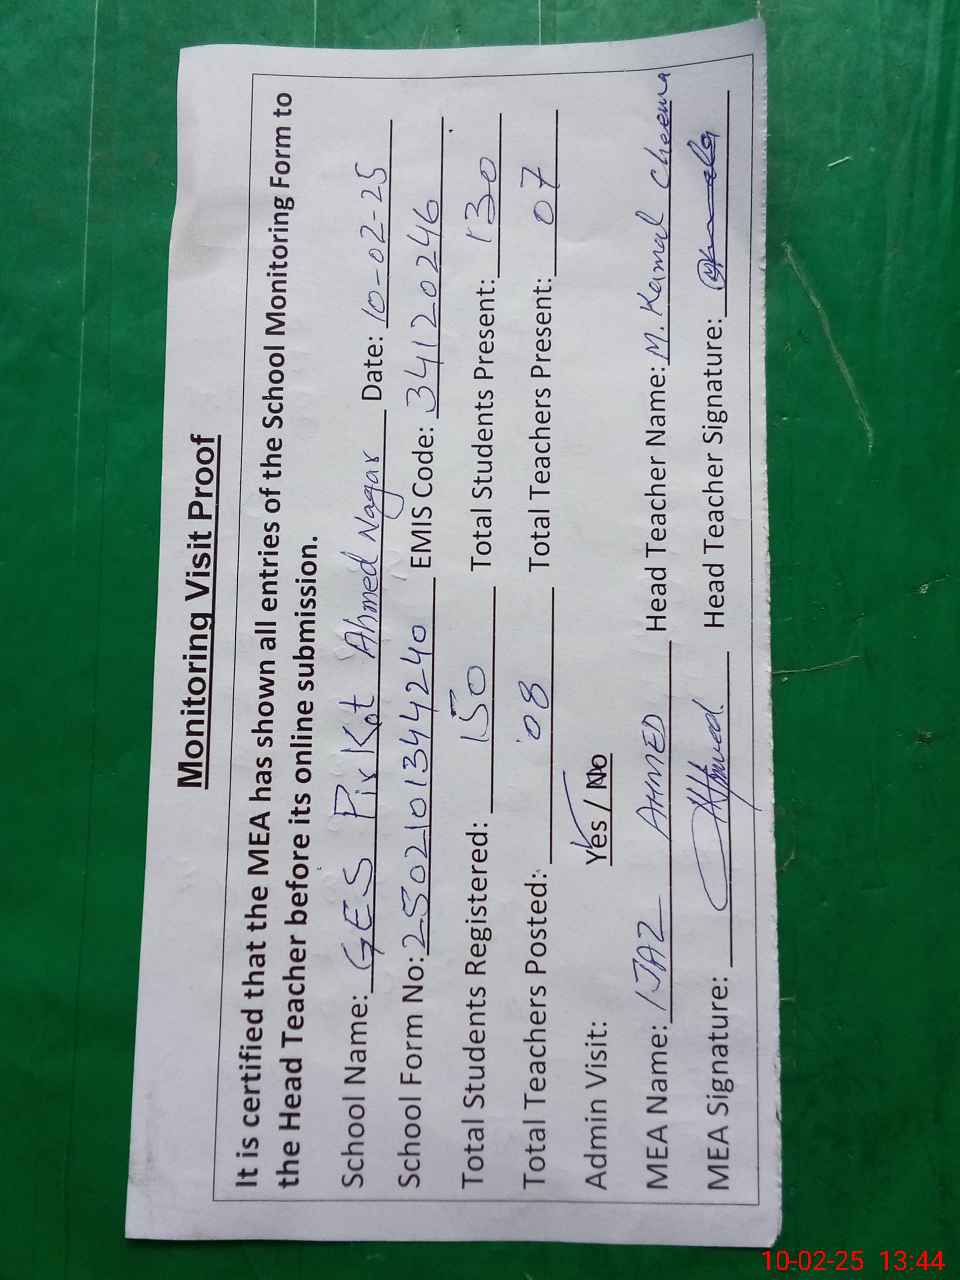 Monitoring Visit Proof
It is certified that the MEA has shown all entries of the School Monitoring Form to
the Head Teacher before its online submission.
School Name: GES Pir Kot Ahmed Nagar Date: 10-02-25
School Form No: 2502101344240 EMIS Code: 34120246
Total Students Registered: 150 Total Students Present: 130
Total Teachers Posted: 08 Total Teachers Present: 07
Admin Visit: Yes / No
MEA Name: IJAZ AHMED Head Teacher Name: M. Kamal Cheema
MEA Signature: Head Teacher Signature:
10-02-25 13:44